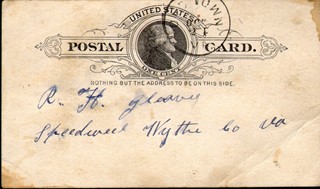 UNITED STATES
POSTAL CARD.
ONE CENT
NOTHING BUT THE ADDRESS TO BE ON THIS SIDE.
R. H. Gleaves
Speedwell Wythe Co Va